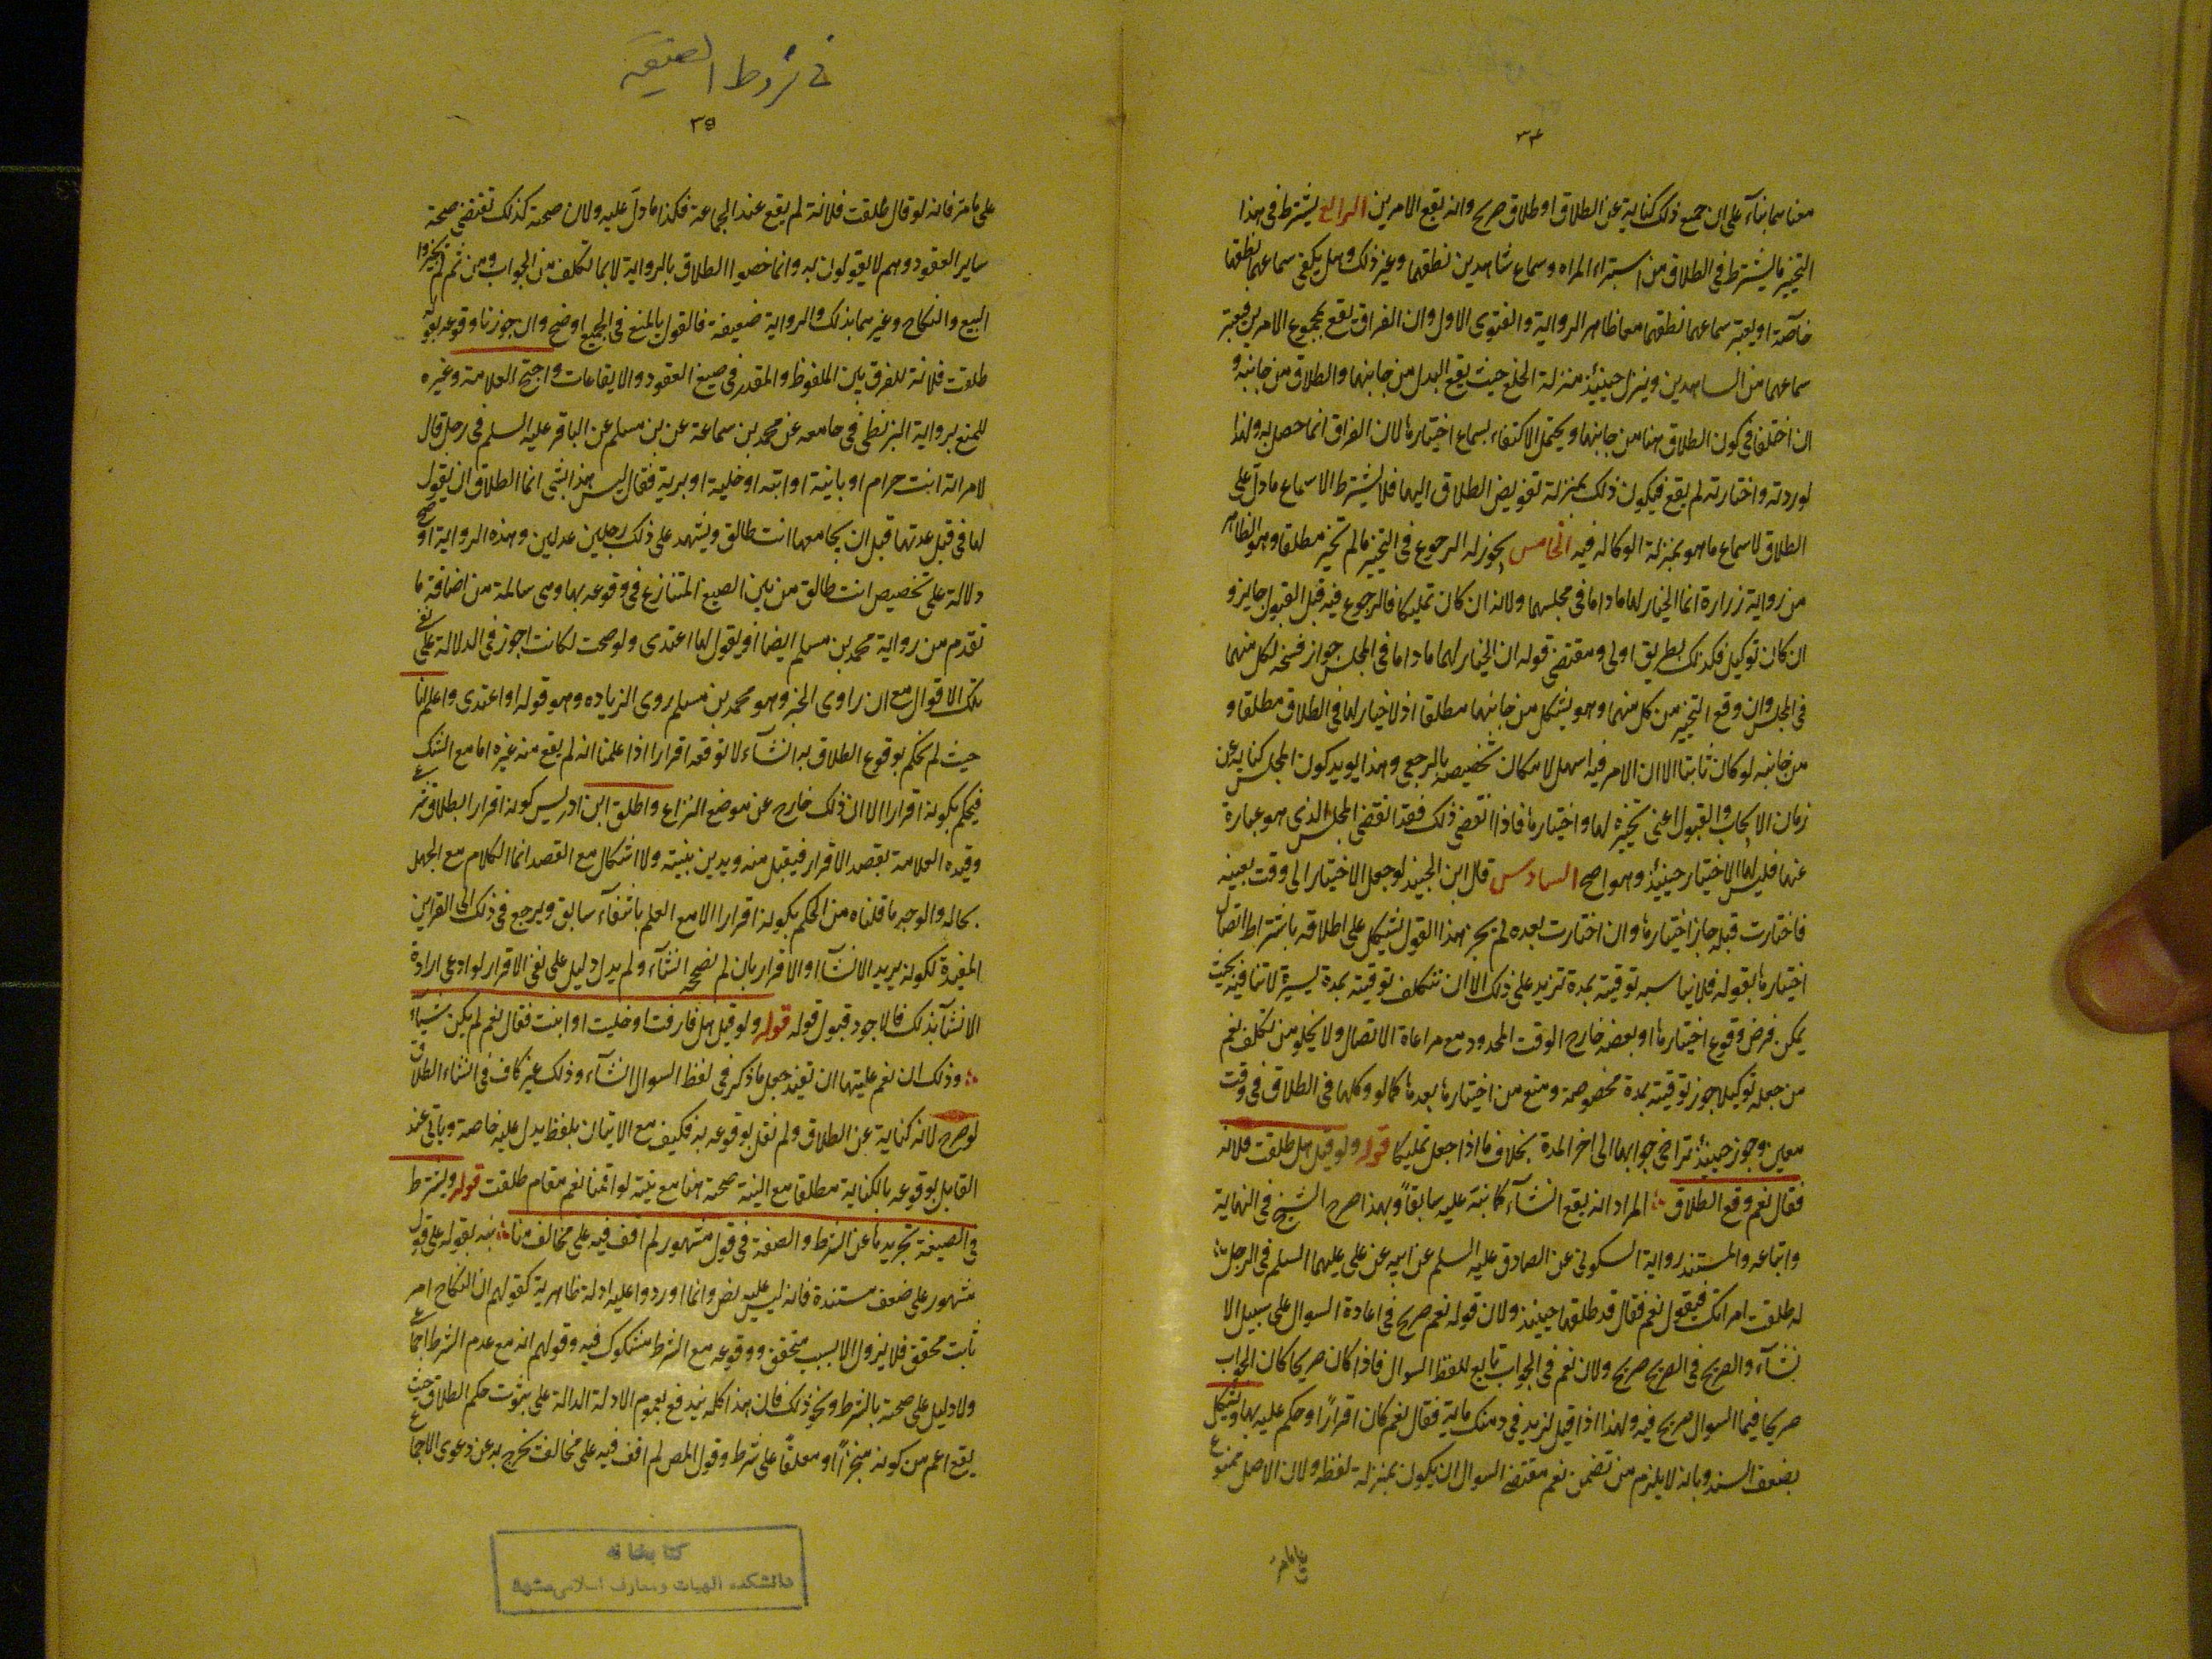 ٣٤
معناهما بناء على ان جميع ذلك كناية عن الطلاق او طلاق صريح وانه يقع الامرين الرابع يشترط في هذا
التخيير ما يشترط في الطلاق من استبراء المراه وسماع شاهدين نطقهما وغير ذلك وهل يكفي سماعهما نطقها
خاصة او يعتبر سماعهما نطقهما معا ظاهر الرواية والفتوى الاول وان الفراق يقع بمجموع الامرين فيعتبر
سماعهما من الشاهدين وينزل حينئذ منزلة الخلع حيث يقع البدل من جانبها والطلاق من جانبه و
ان اختلفا في كون الطلاق هنا من جانبها ويحتمل الاكتفاء بسماع اختيارها لان الفراق انما حصل به ولهذا
لو ردته واختارته لم يقع فيكون ذلك بمنزلة تفويض الطلاق اليها فلا يشترط الا سماع ما دل على
الطلاق لا سماع ما هو بمنزلة الوكاله فيه الخامس يجوز له الرجوع في التخيير ما لم تختر مطلقا وهو الظاهر
من رواية زرارة انما الخيار لهما ما داما في مجلسهما ولانه ان كان تمليكا فالرجوع فيه قبل القبول جايز و
ان كان توكيلا فكذلك بطريق اولى ومقتضى قوله ان الخيار لهما ما داما في المجلس جواز فسخه لكل منهما
في المجلس وان وقع التخيير من كل منهما وهو يشكل من جانبها مطلقا اذ لا خيار لها في الطلاق مطلقا و
من جانبه لو كان ثابتا الا ان الامر فيه اسهل لامكان تخصيصه بالرجعي وهذا يويد كون المجلس كناية عن
زمان الايجاب والقبول اعني تخييره لها واختيارها فاذا انقضى ذلك فقد انقضى المجلس الذي هو عبارة
عنها فليس لها الاختيار حينئذ وهو اصح السادس قال ابن الجنيد لو جعل الاختيار الى وقت بعينه
فاختارت قبله جاز اختيارها وان اختارت بعده لم يجز هذا القول يشكل على اطلاقه باشتراط اتصال
اختيارها بقوله فلا يناسبه توقيته بمدة تزيد على ذلك الا ان نتكلف توقيته بمدة يسيرة لا تنافيه بحيث
يمكن فرض وقوع اختيارها او بعضه خارج الوقت المحدود مع مراعاة الاتصال ولا يخلو من تكلف نعم
من جعله توكيلا جوز توقيته بمدة مخصوصة ومنع من اختيارها بعدها كما لو وكلها في الطلاق في وقت
معين وجوز حينئذ تراخي جوابها الى اخر المدة بخلاف ما اذا جعل تمليكا قوله ولو قيل هل طلقت فلانة
فقال نعم وقع الطلاق المراد انه يقع انشآء كما نبه عليه سابقا وبهذا صرح الشيخ في النهاية
واتباعه والمستند رواية السكوني عن الصادق عليه السلم عن ابيه عن علي عليهما السلم في الرجل يقال
له طلقت امراتك فيقول نعم فقال قد طلقها حينئذ ولان قوله نعم صريح في اعادة السوال على سبيل الا
نشآء والصريح في الصريح صريح ولان نعم في الجواب تابع للفظ السوال فاذا كان صريحا كان الجواب
صريحا فيما السوال صريح فيه ولهذا اذا قيل لزيد في ذمتك ماية فقال نعم كان اقرارا وحكم عليه بها ويشكل
بضعف السند وبانه لا يلزم من تضمن نعم مقتضى السوال ان يكون بمنزلة لفظه ولان الاصل ممنوع
في شروط الصيغة
٣٥
على ما مر فانه لو قال طلقت فلانة لم يقع عند الجماعة فكذا ما دل عليه ولان صحته كذلك تقتضي صحة
ساير العقود وهم لا يقولون به وانما خصوا الطلاق بالرواية لا بما تكلف من الجواب ومن ثم لم يجيزوا
البيع والنكاح وغيرهما بذلك والرواية ضعيفة فالقول بالمنع في الجميع اوضح وان جوزنا وقوعه بقوله
طلقت فلانة للفرق بين الملفوظ والمقدر في صيغ العقود والايقاعات واحتج العلامة وغيره
للمنع برواية البزنطي في جامعه عن محمد بن سماعة عن بن مسلم عن الباقر عليه السلم في رجل قال
لامراته انت حرام او باينة او ابته او خلية او برية فقال ليس هذا بشي انما الطلاق ان يقول
لها في قبل عدتها قبل ان يجامعها انت طالق ويشهد على ذلك رجلين عدلين وهذه الرواية اوضح
دلالة على تخصيص انت طالق من بين الصيغ المتنازع في وقوعه بها وهي سالمة من اضافة ما
تقدم من رواية محمد بن مسلم ايضا او يقول لها اعتدى ولو صحت لكانت اجود في الدلالة على نفي
تلك الاقوال مع ان راوي الخبر وهو محمد بن مسلم روى الزياده وهو قوله او اعتدى واعلم انا
حيث لم نحكم بوقوع الطلاق به انشآء لا نوقعه اقرارا اذا علمنا انه لم يقع منه غيره اما مع الشك
فيحكم بكونه اقرارا الا ان ذلك خارج عن موضع النزاع واطلق ابن ادريس كونه اقرارا بطلاق شرعي
وقيده العلامة بقصد الاقرار فيقبل منه ويدين بنيته ولا اشكال مع القصد انما الكلام مع الجهل
بحاله والوجه ما قلناه من الحكم بكونه اقرارا الا مع العلم بانتفآء سابق ويرجع في ذلك الى القراين
المفيدة لكونه يريد الانشآ او الاقرار بان لم نصححه انشآء ولم يدل دليل على نفي الاقرار لو ادعى ارادة
الانشآ بذلك فالاجود قبول قوله قوله ولو قيل هل فارقت او خليت او ابنت فقال نعم لم يكن شيئا
وذلك ان نعم عليتها ان تفيد جعل ما ذكر في لفظ السوال انشآء وذلك غير كاف في انشاء الطلاق
لو صرح لانه كناية عن الطلاق ولم نقل بوقوعه به فكيف مع الاتيان بلفظ يدل عليه خاصة وياتي عند
القايل بوقوعه بالكناية مطلقا مع النية صحته هنا مع نيته لو اقمنا نعم مقام طلقت قوله ويشترط
في الصيغة تجريدها عن الشرط والصفة في قول مشهور لم اقف فيه على مخالف منا نبه بقوله على قول
مشهور على ضعف مستنده فانه ليس عليه نص وانما اوردوا عليه ادلة ظاهرية كقولهم ان النكاح امر
ثابت محقق فلا يزول الا بسبب متحقق ووقوعه مع الشرط مشكوك فيه وقولهم انه مع عدم الشرط اجماع
ولا دليل على صحته بالشرط ونحو ذلك فان هذا كله يندفع بعموم الادلة الدالة على ثبوت حكم الطلاق حيث
يقع اعم من كونه منجزا او معلقا على شرط وقول المص لم اقف فيه على مخالف تخرج به عن دعوى الاجماع
كتابخانه
دانشكده الهيات ومعارف اسلامى مشهد